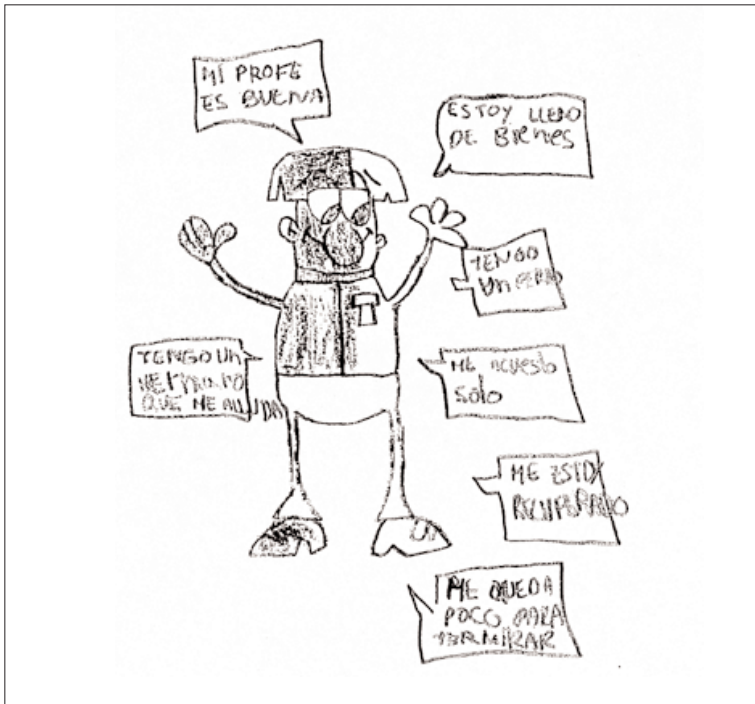 MI PROFE
ES BUENA
ESTOY LLENO
DE BIENES
TENGO
UN PERRO
TENGO UN
HERMANO
QUE ME ALLUDA
ME ACUESTO
SOLO
ME ESTOY
RECUPERANDO
ME QUEDA
POCO PARA
TERMINAR